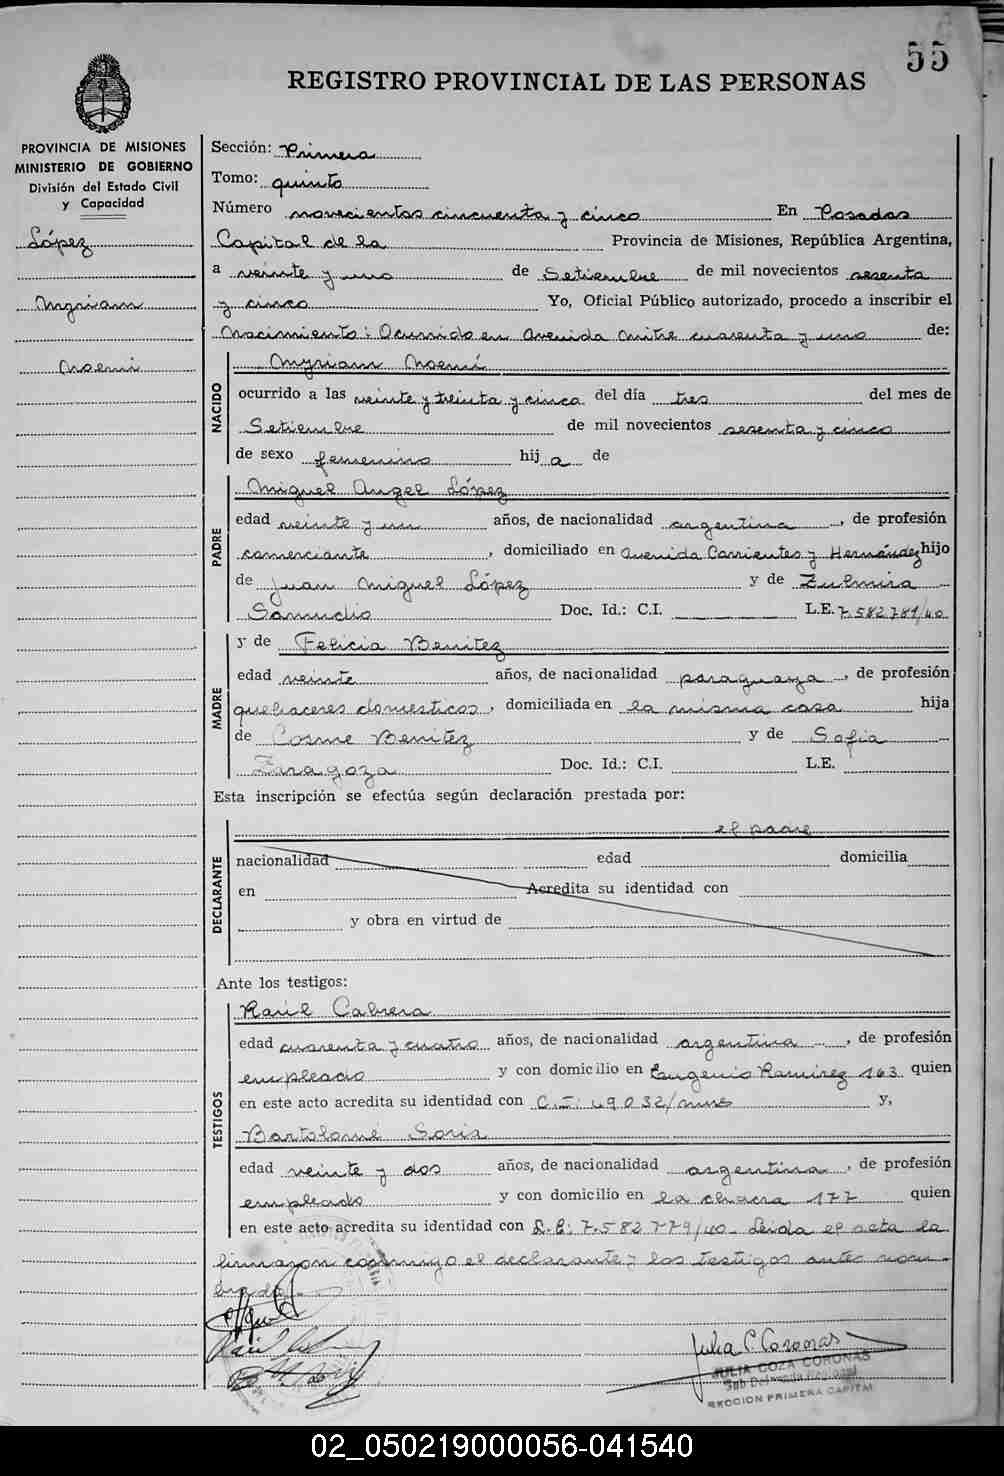 55
REGISTRO PROVINCIAL DE LAS PERSONAS
PROVINCIA DE MISIONES
MINISTERIO DE GOBIERNO
División del Estado Civil
y Capacidad
López
Myriam
Noemi
Sección: Primera
Tomo: quinto
Número novecientos cincuenta y cinco En Posadas
Capital de la Provincia de Misiones, República Argentina,
a veinte y uno de Setiembre de mil novecientos sesenta
y cinco Yo, Oficial Público autorizado, procedo a inscribir el
Nacimiento: Ocurrido en Avenida Mitre cuarenta y uno de:
NACIDO
Myriam Noemí
ocurrido a las veinte y treinta y cinco del día tres del mes de
Setiembre de mil novecientos sesenta y cinco
de sexo femenino hij a de
PADRE
Miguel Angel López
edad veinte y un años, de nacionalidad argentina, de profesión
comerciante, domiciliado en Avenida Corrientes y Hernández hijo
de Juan Miguel López y de Zulmira
Samudio Doc. Id.: C.I. L.E. 7.582.781/40
MADRE
y de Felicia Benitez
edad veinte años, de nacionalidad paraguaya, de profesión
quehaceres domesticos, domiciliada en la misma casa hija
de Cosme Benitez y de Sofia
Zaragoza Doc. Id.: C.I. L.E.
Esta inscripción se efectúa según declaración prestada por:
DECLARANTE
el padre
nacionalidad edad domicilia
en Acredita su identidad con
y obra en virtud de
Ante los testigos:
TESTIGOS
Raúl Cabrera
edad cuarenta y cuatro años, de nacionalidad argentina, de profesión
empleado y con domicilio en Eugenio Ramirez 163 quien
en este acto acredita su identidad con C.I: 49032/mns y,
Bartolomé Soria
edad veinte y dos años, de nacionalidad argentina, de profesión
empleado y con domicilio en la chacra 177 quien
en este acto acredita su identidad con L.E: 7.582779/40- Leida el acta la
firmaron conmigo el declarante y los testigos antes nom-
brados.
Julia C. Coronas
JULIA COZA CORONAS
Sub Delegada Regional
SECCION PRIMERA CAPITAL
02_050219000056-041540